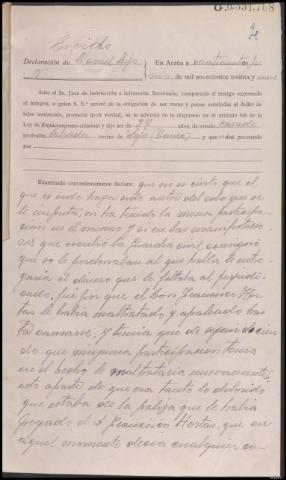 Declaración de Manuel Seijo
En Arzúa a veinticuatro de
de mil novecientos treinta y
Ante el Sr. Juez de instrucción e infrascrito Secretario, compareció el testigo expresado
al margen, a quien S. S.ª enteró de la obligación de ser veraz y penas señaladas al delito de
falso testimonio, prometió decir verdad, se le advirtió de lo dispuesto en el artículo 446 de la
Ley de Enjuiciamiento criminal y dijo ser de 27 años, de estado casado
profesión labrador vecino de y que ha sido procesado
por
Examinado convenientemente declara: que no es cierto que el
que es onde haya sido autor del robo que se
le imputa, ni ha tenido la menor participa-
ción en el mismo y si en las manifestacio-
nes que escribió la Guardia civil aseguró
que si le perdonaban al que habla le entre-
garía el dinero que le faltaba al perjudi-
cado, fue por que el don Francisco Hor-
tas le había maltratado y apaleado has-
ta cansarse. Y temía que de seguir dicien-
do que ninguna participación tenía
en el hecho le maltrataría nuevamente,
esto aparte de que era tanto lo dolorido
que estaba de la paliza que le había
pegado el D. Francisco Hortas, que en
aquel momento decía cualquier co-